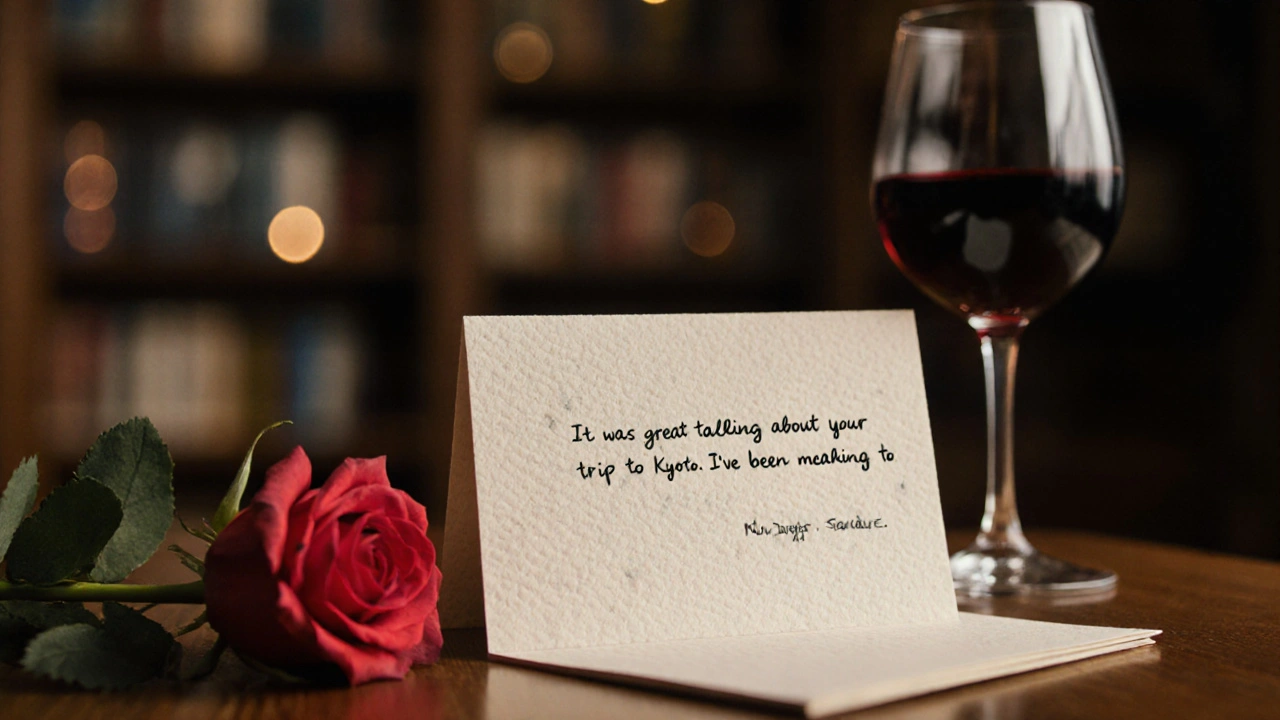 It was great talling about your
trip to Kyoto. I've been mcaking to